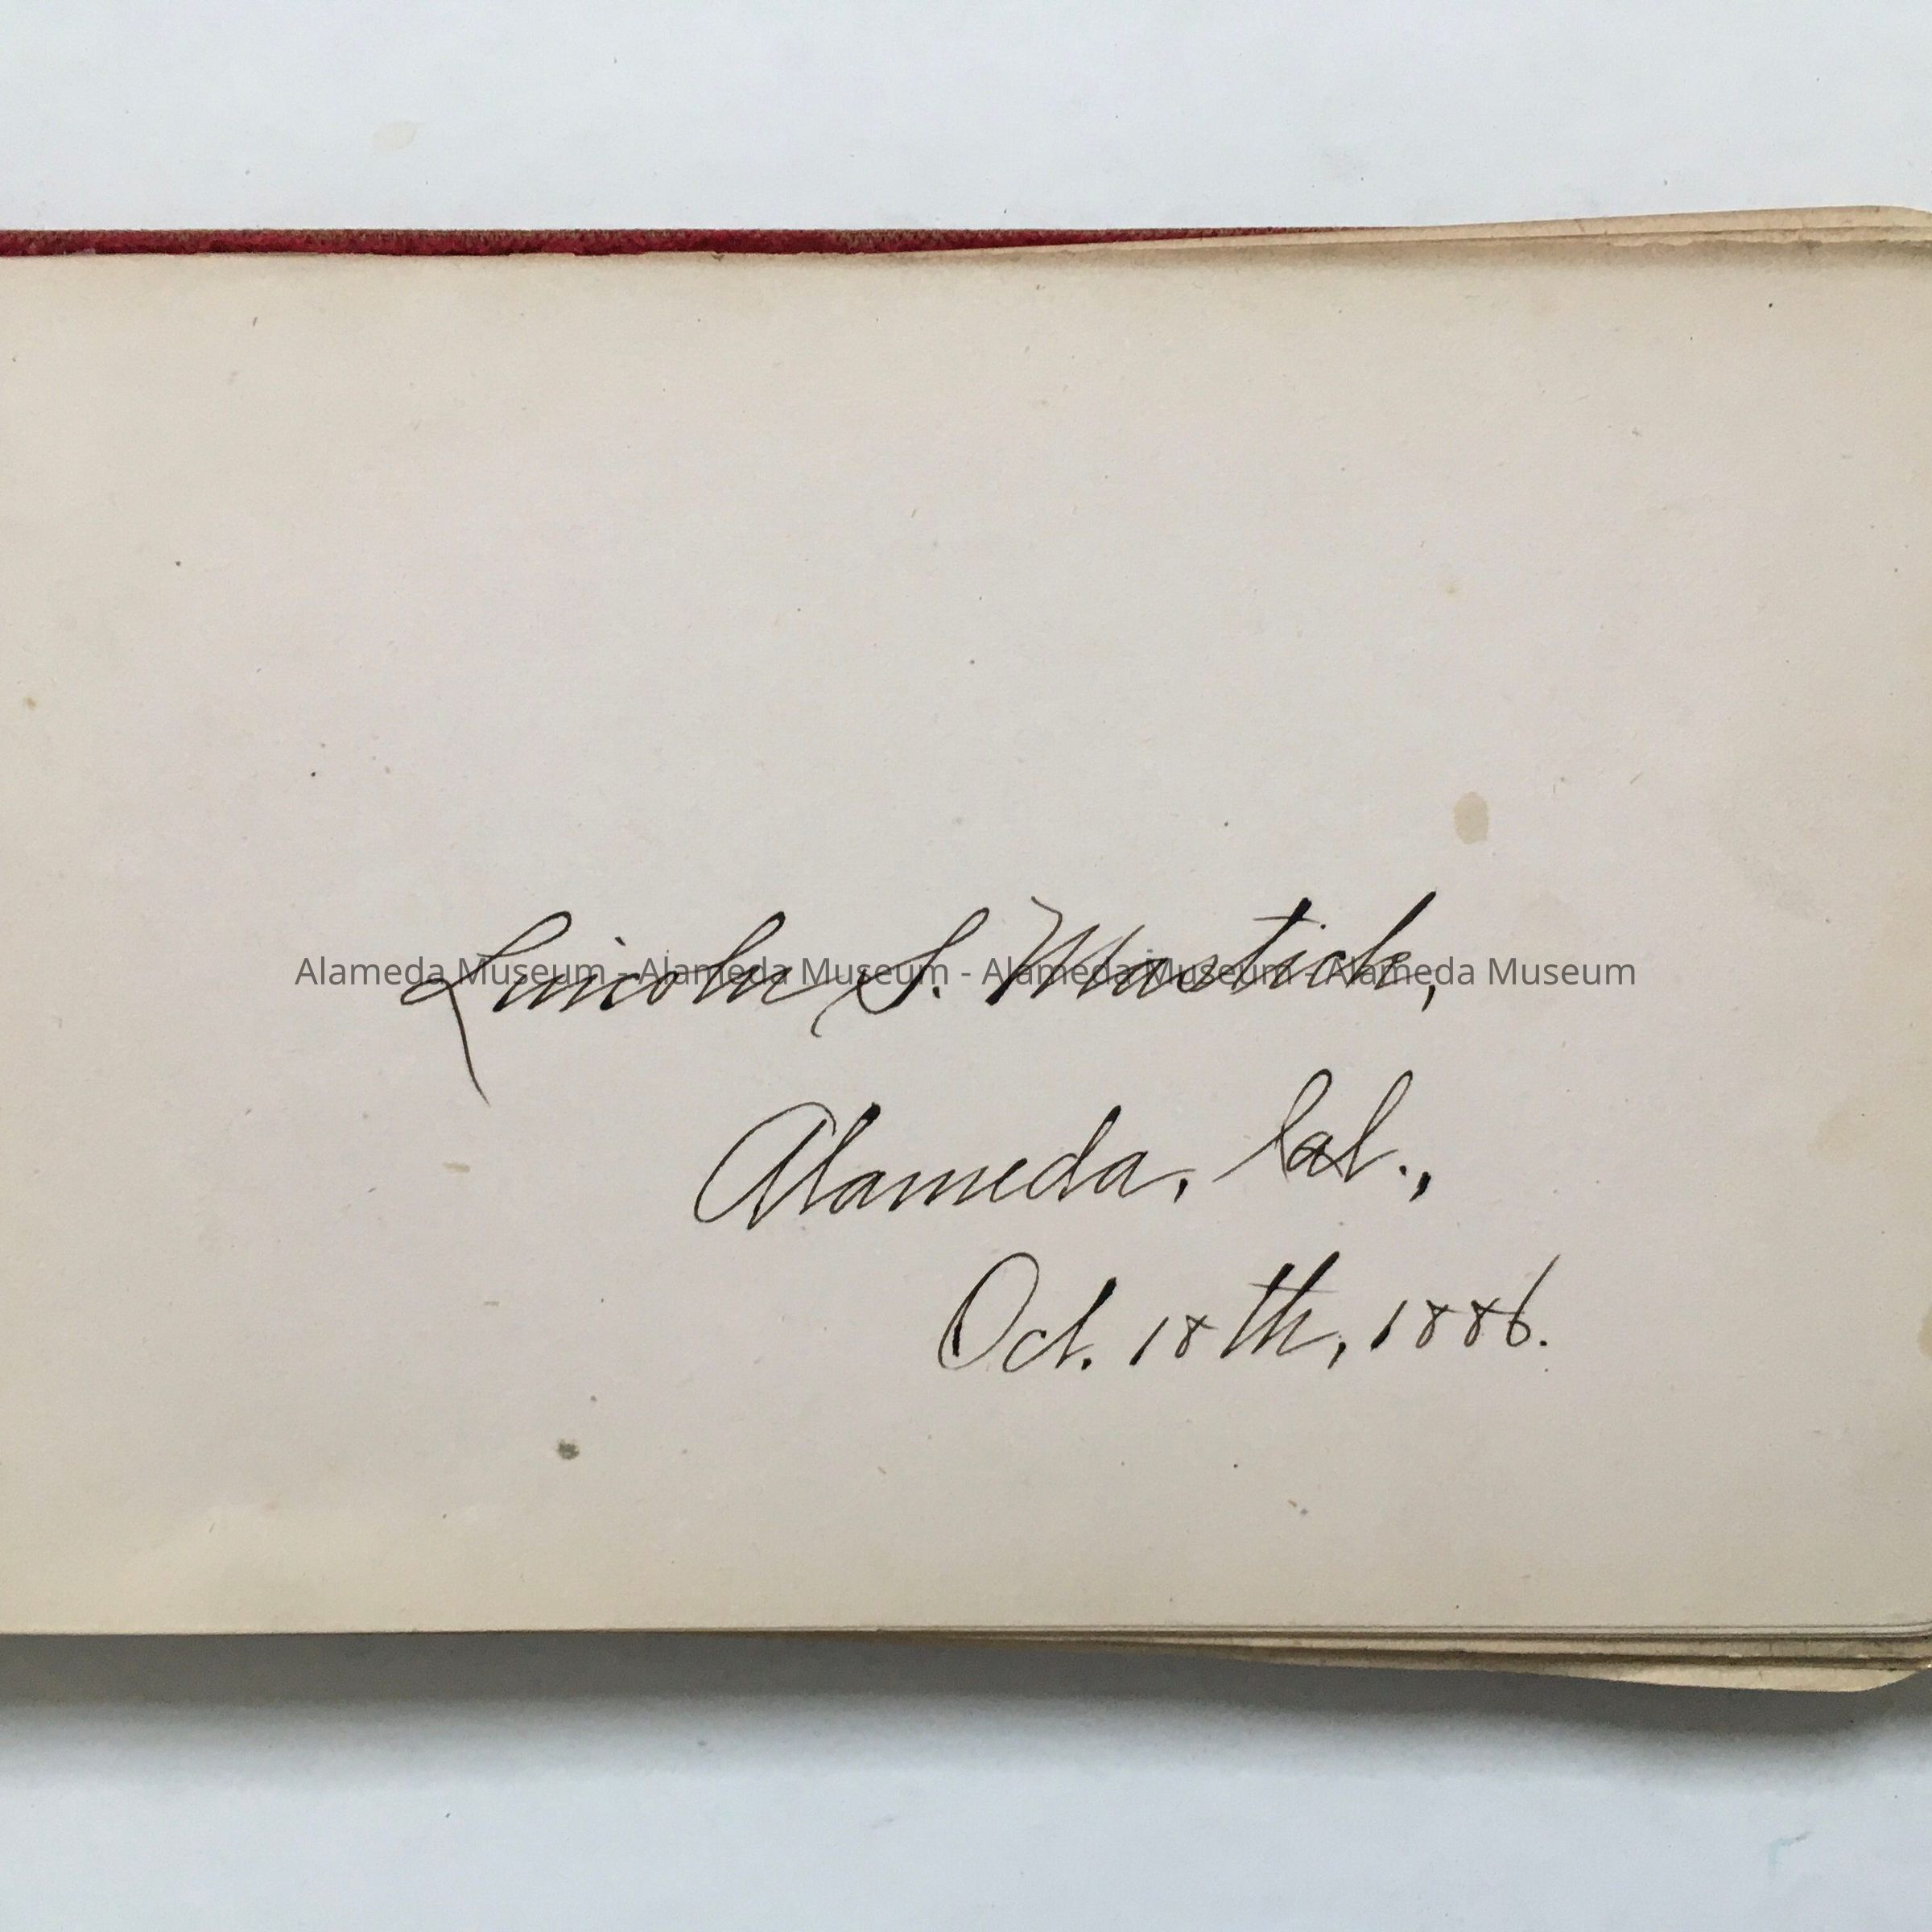 Lincoln S. Mastick,
Alameda Museum - Alameda Museum - Alameda Museum - Alameda Museum
Alameda, Cal.,
Oct. 18th, 1886.